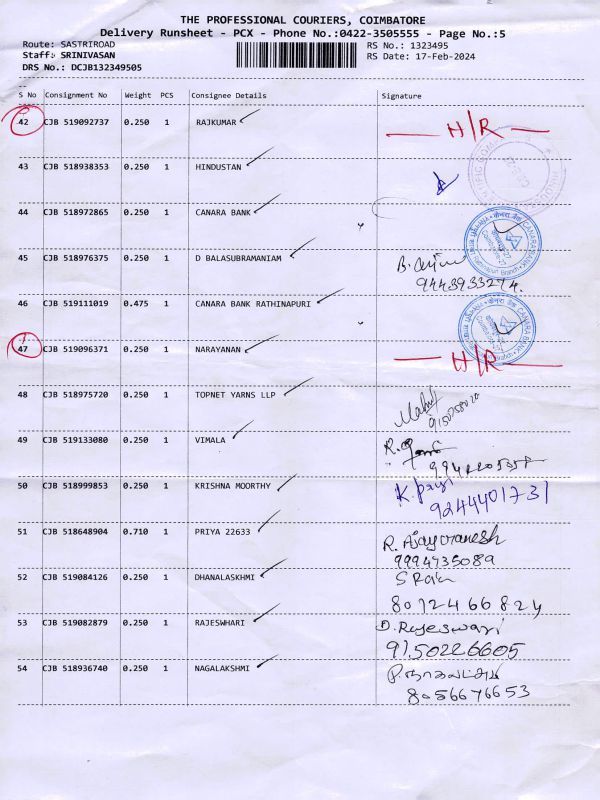 THE PROFESSIONAL COURIERS, COIMBATORE
Delivery Runsheet - PCX - Phone No.:0422-3505555 - Page No.:5
Route: SASTRIROAD
RS No.: 1323495
Staff: SRINIVASAN
RS Date: 17-Feb-2024
DRS No.: DCJB132349505
S No Consignment No Weight PCS Consignee Details Signature
42 CJB 519092737 0.250 1 RAJKUMAR H/R
43 CJB 518938353 0.250 1 HINDUSTAN
44 CJB 518972865 0.250 1 CANARA BANK
CANARA BANK
45 CJB 518976375 0.250 1 D BALASUBRAMANIAM
9443933274.
46 CJB 519111019 0.475 1 CANARA BANK RATHINAPURI
CANARA BANK
47 CJB 519096371 0.250 1 NARAYANAN H/R
48 CJB 518975720 0.250 1 TOPNET YARNS LLP
49 CJB 519133080 0.250 1 VIMALA
50 CJB 518999853 0.250 1 KRISHNA MOORTHY
9244401731
51 CJB 518648904 0.710 1 PRIYA 22633
9994735089
52 CJB 519084126 0.250 1 DHANALASKHMI
8072466824
53 CJB 519082879 0.250 1 RAJESWHARI D. Rajeswari
9150226605
54 CJB 518936740 0.250 1 NAGALAKSHMI
8056676653